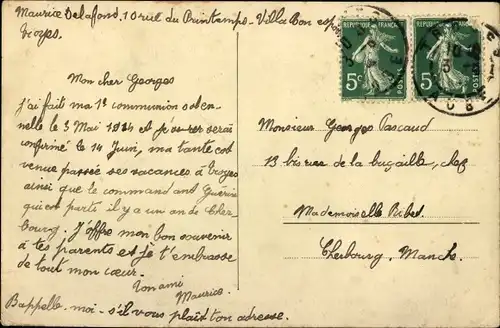 Maurice Delafond, 10 rue du Printemps - Villa Bon esp
Troyes.
Mon cher Georges
J'ai fait ma 1e communion solen-
nelle le 3 Mai 1914 et je serai
confirmé le 14 Juin, ma tante est
venue passée ses vacances à Troyes
ainsi que le commandant Guérin
qui est parti il y a un an de Cher
bourg. J'offre mon bon souvenir
à tes parents et je t'embrasse
de tout mon cœur.
Ton ami
Maurice.
Rappelle-moi - s'il vous plaît ton adresse.
REPUBLIQUE FRANÇAISE
5c
POSTES
REPUBLIQUE FRANÇAISE
5c
POSTES
Monsieur Georges Pascaud
13 bis rue de la bucaille, chez
Mademoiselle Ribet
Cherbourg. Manche.